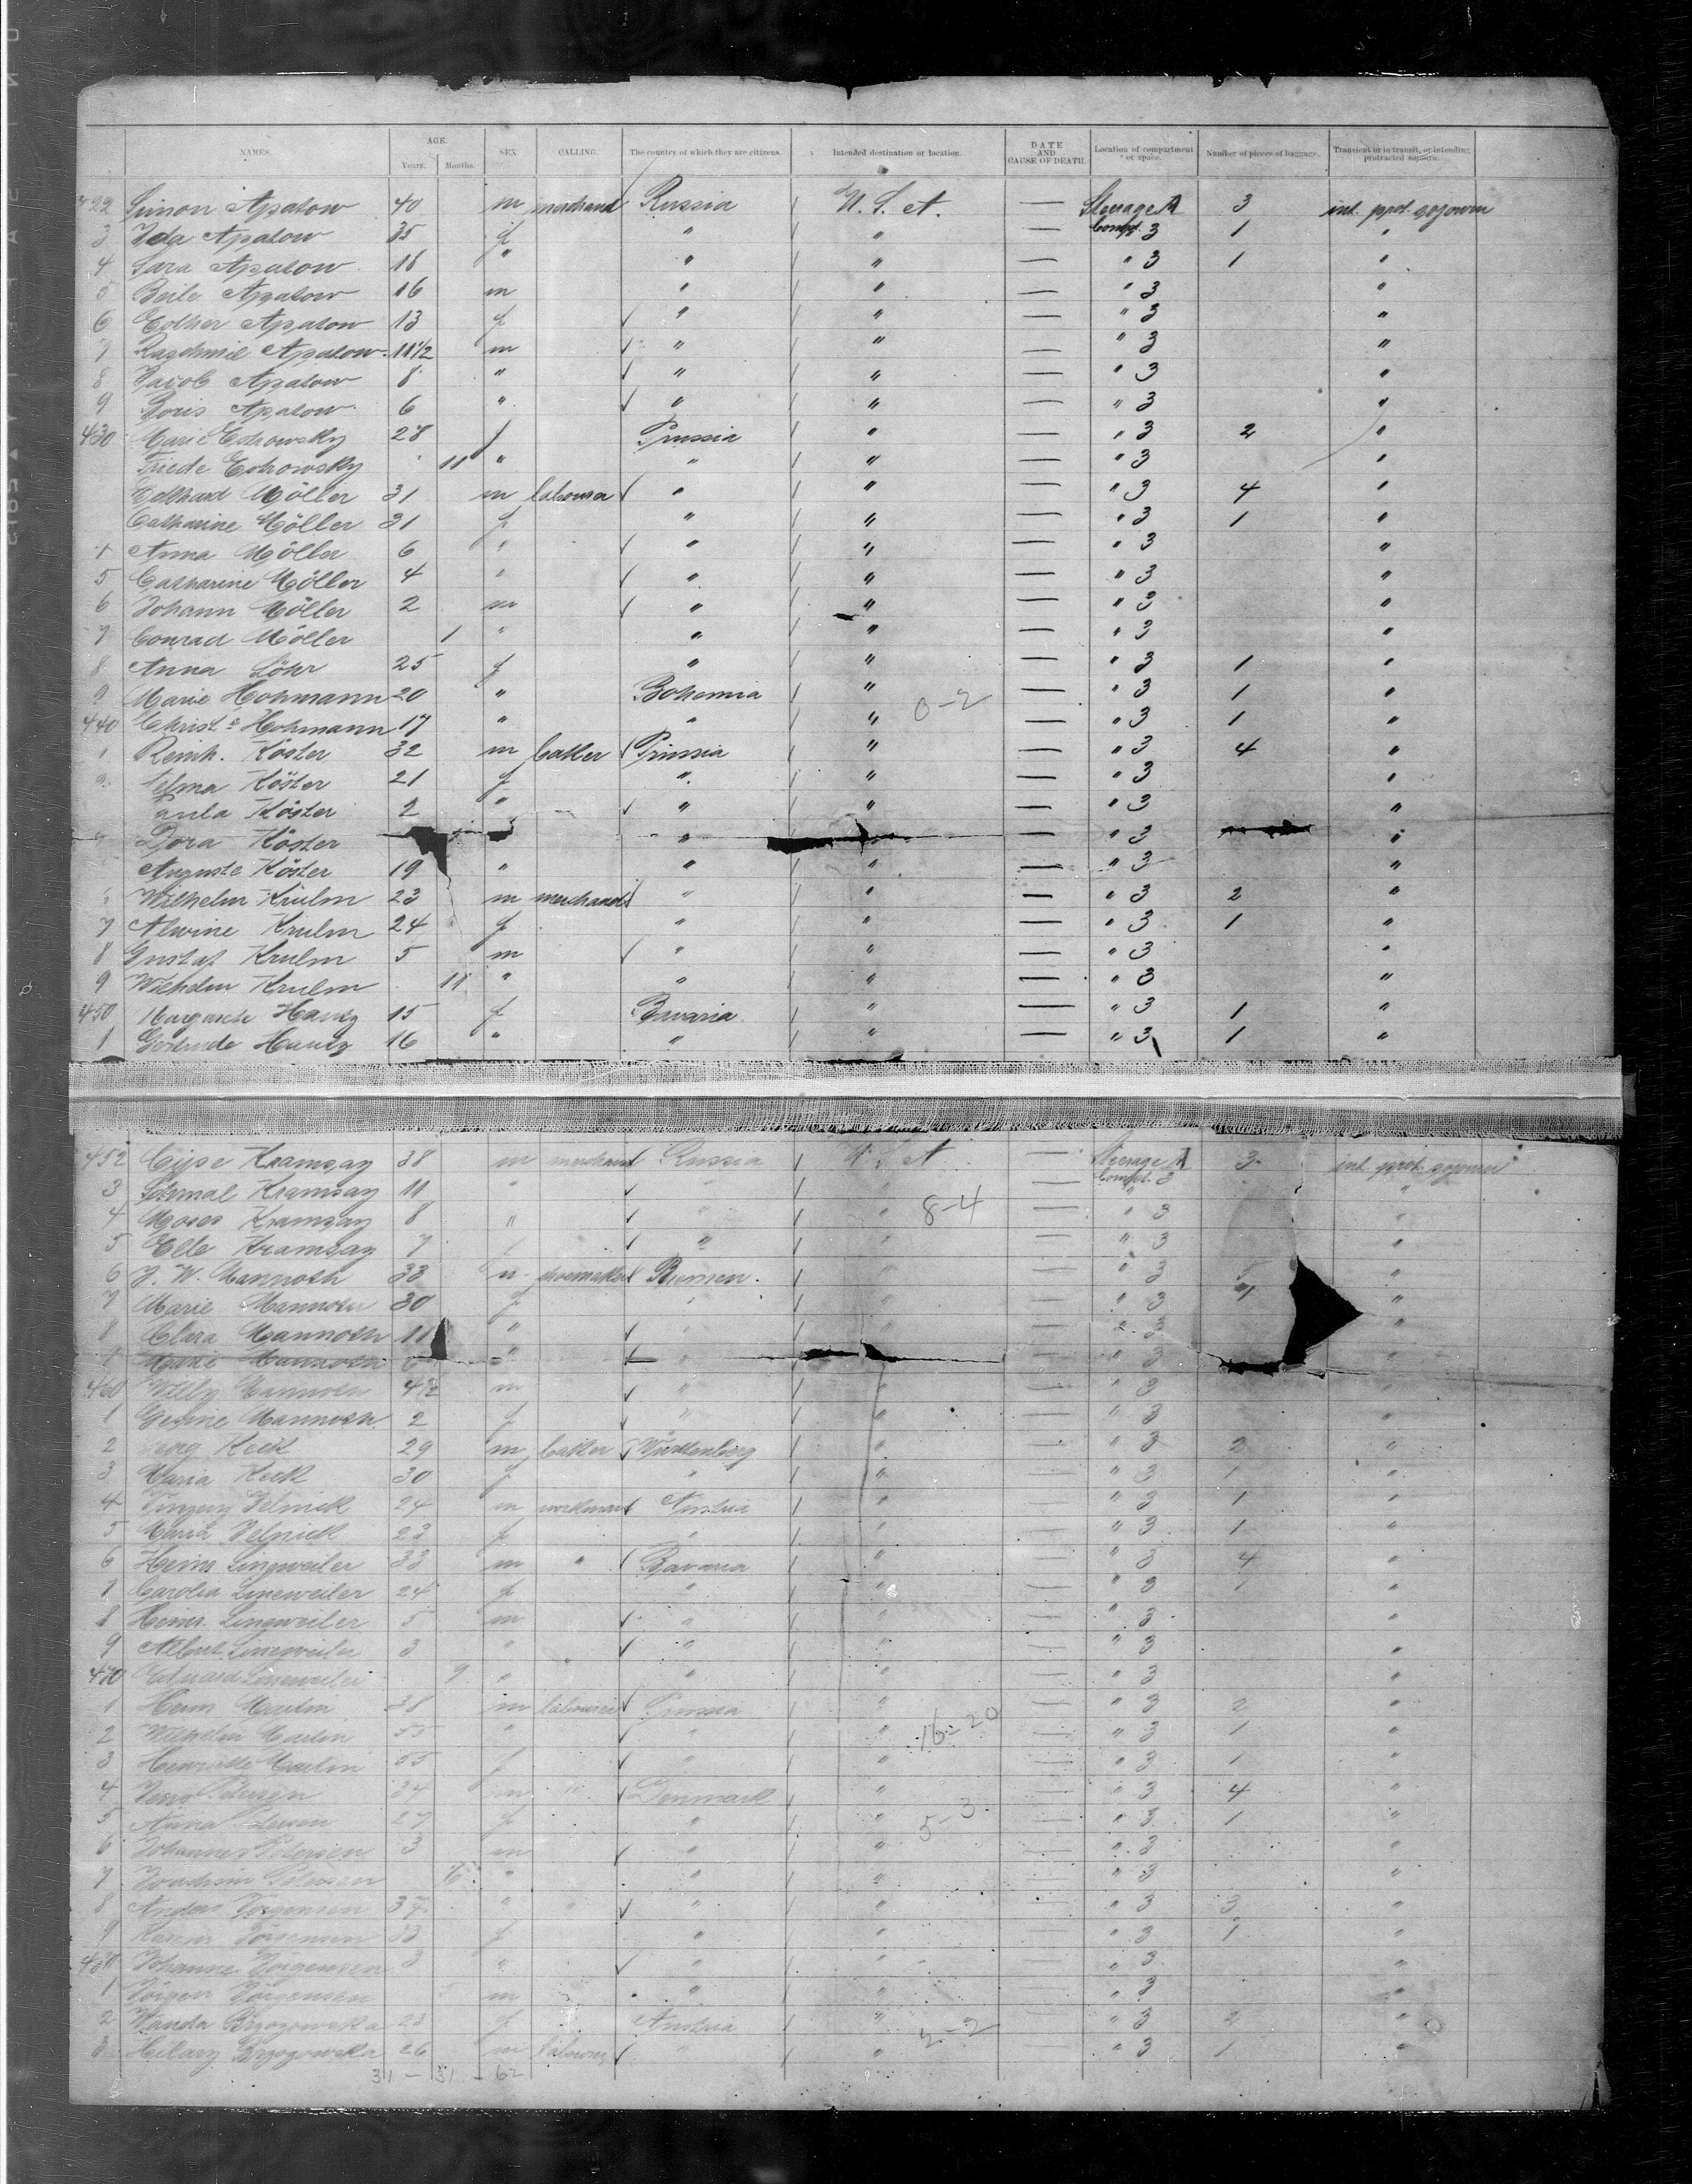 NAMES. AGE. Years. Months. SEX. CALLING. The country of which they are citizens. Intended destination or location. DATE AND CAUSE OF DEATH. Location of compartment or space. Number of pieces of baggage. Transient or in transit, or intending protracted sojourn.
422 Simon Apatow 40 m merchand Russia U. S. A. — Steerage A 3 int. prot. sojourn
3 Ida Apatow 35 f " " — Compt. 3 1 "
4 Sara Apatow 18 " " " — " 3 1 "
5 Beile Apatow 16 m " " — " 3 "
6 Esther Apatow 13 f " " — " 3 "
7 Apatow 11 1/2 m " " — " 3 "
8 Jacob Apatow 8 " " " — " 3 "
9 Boris Apatow 6 " " " — " 3 "
430 Marie 28 f Prussia " — " 3 2 "
Friede 11 " " " — " 3 "
Möller 31 m labourer " " — " 3 4 "
Catharine Möller 31 f " " — " 3 1 "
Anna Möller 6 " " " — " 3 "
5 Catharine Möller 4 " " " — " 3 "
6 Johann Möller 2 m " " — " 3 "
7 Conrad Möller 1 " " " — " 3 "
8 Anna Löhr 25 f " " — " 3 1 "
9 Marie Hohmann 20 " Bohemia " 0-2 — " 3 1 "
440 Christ.e Hohmann 17 " " " — " 3 1 "
1 Reinh. Köster 32 m baker Prussia " — " 3 4 "
Selma Köster 21 f " " — " 3 "
Paula Köster 2 " " " — " 3 "
Dora Köster " " " 3 "
Auguste Köster 19 " " " — " 3 "
Wilhelm Krulm 23 m merchand " " — " 3 2 "
7 Alwine Krulm 24 f " " — " 3 1 "
8 Gustaf Krulm 5 m " " — " 3 "
9 Wilhelm Krulm 11 " " " — " 3 "
450 Margareth 15 f Bavaria " — " 3 1 "
1 Gertrude 16 " " " — " 3 1 "
452 Kramsay 38 m merchand Russia U. S. A. — Steerage A 3 int. prot. sojourn
3 Kramsay 11 " " " — Compt. 3 "
4 Moses Kramsay 8 " " " 8-4 — " 3 "
5 Elle Kramsay 7 f " " — " 3 "
6 J. W. Mannosh 33 m shoemaker Bremen. " — " 3 5 "
7 Marie Mannosh 30 f " " — " 3 1 "
8 Clara Mannosh 11 " " " — " 3 "
Marie Mannosh " " — " 3 "
460 Willy Mannosh 4 1/2 m " " — " 3 "
1 Gesine Mannosh 2 f " " — " 3 "
2 Georg Keck 29 m baker Würtenberg " — " 3 2 "
3 Maria Keck 30 f " " — " 3 1 "
4 24 m workman Austria " — " 3 1 "
5 Maria 23 f " " — " 3 1 "
6 Heinr. Lineweiler 33 m " Bavaria " — " 3 4 "
7 Lineweiler 24 f " " — " 3 1 "
8 Heinr. Lineweiler 5 m " " — " 3 "
9 Albert Lineweiler 3 " " " — " 3 "
470 Eduard Lineweiler 9 " " " — " 3 "
1 38 m labourer Prussia " — " 3 2 "
2 Wilhelm 55 " " " 16-20 — " 3 1 "
3 Henriette 55 f " " — " 3 1 "
4 Petersen 34 m " Denmark " — " 3 4 "
5 Anna Petersen 27 f " " 5-3 — " 3 1 "
6 Johannes Petersen 3 m " " — " 3 "
7 Joachim Petersen " " " — " 3 "
8 Anders Jörgensen 37 " " " " — " 3 3 "
9 Karen Jörgensen 33 f " " — " 3 1 "
480 Johanne Jörgensen 3 " " " — " 3 "
1 Jörgen Jörgensen 5 m " " — " 3 "
2 Wanda Brzozowska 23 f Austria " 2-2 — " 3 2 "
3 Hilary Brzozowska 26 m labourer " " — " 3 1 "
31 — 31 — 62